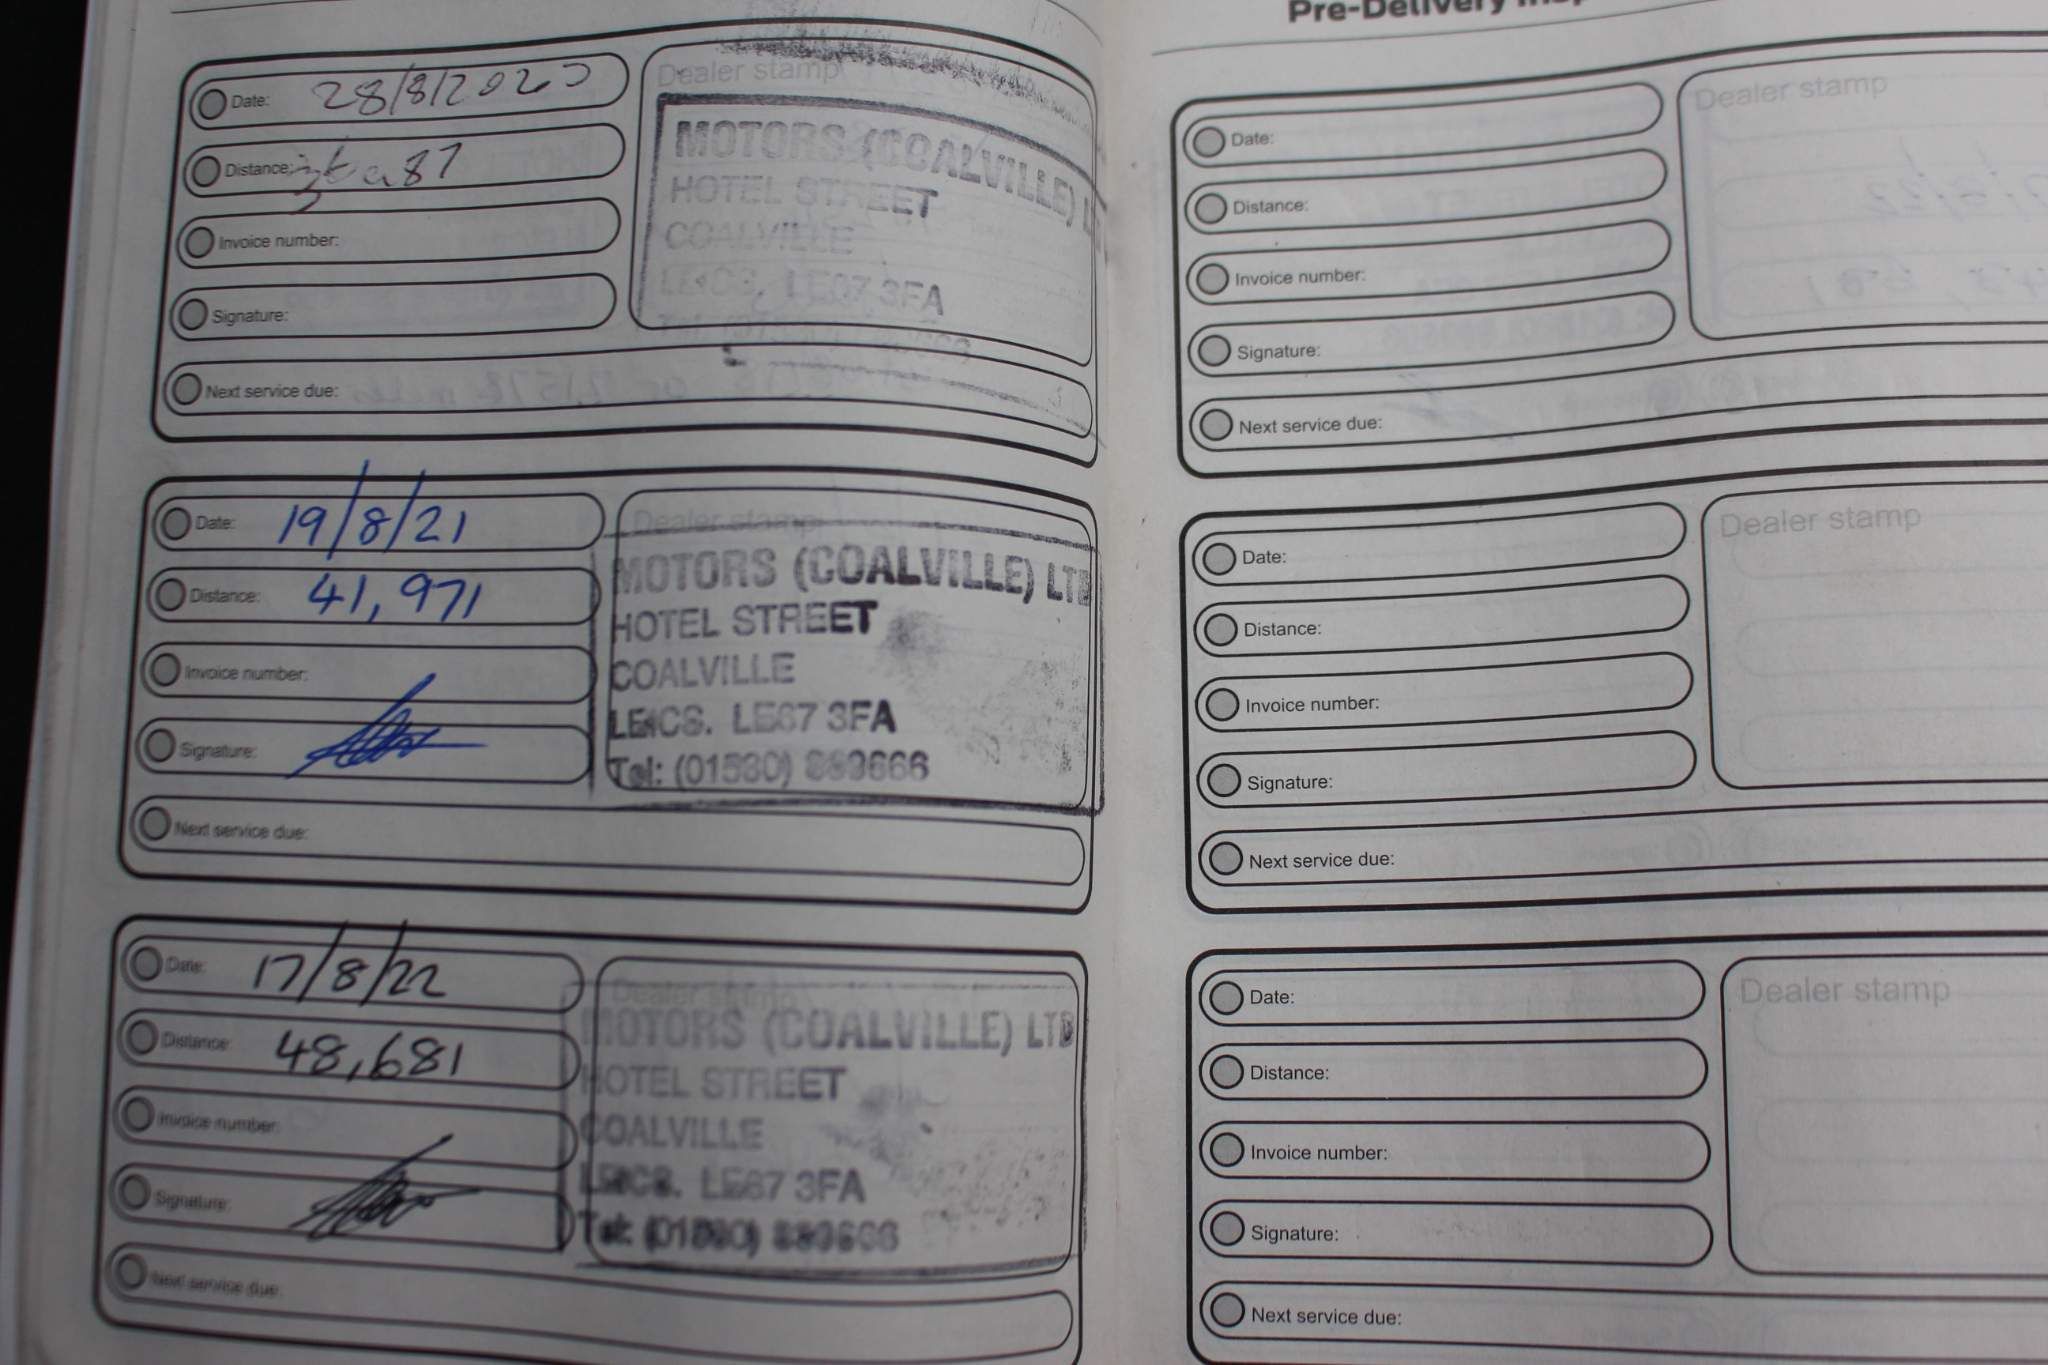 Date: 28/8/2020
Distance:
Invoice number:
Signature:
Next service due:
Dealer stamp
MOTORS (COALVILLE)
HOTEL STREET
COALVILLE
LEICS. LE67 3FA
Date: 19/8/21
Distance: 41,971
Invoice number:
Signature:
Next service due:
Dealer stamp
MOTORS (COALVILLE) LTD
HOTEL STREET
COALVILLE
LEICS. LE67 3FA
Tel: (01530)
Date: 17/8/22
Distance: 48,681
Invoice number:
Signature:
Next service due:
Dealer stamp
MOTORS (COALVILLE) LTD
HOTEL STREET
COALVILLE
LEICS. LE67 3FA
Tel: (01530)
Pre-Delivery
Date:
Distance:
Invoice number:
Signature:
Next service due:
Dealer stamp
Date:
Distance:
Invoice number:
Signature:
Next service due:
Dealer stamp
Date:
Distance:
Invoice number:
Signature:
Next service due:
Dealer stamp